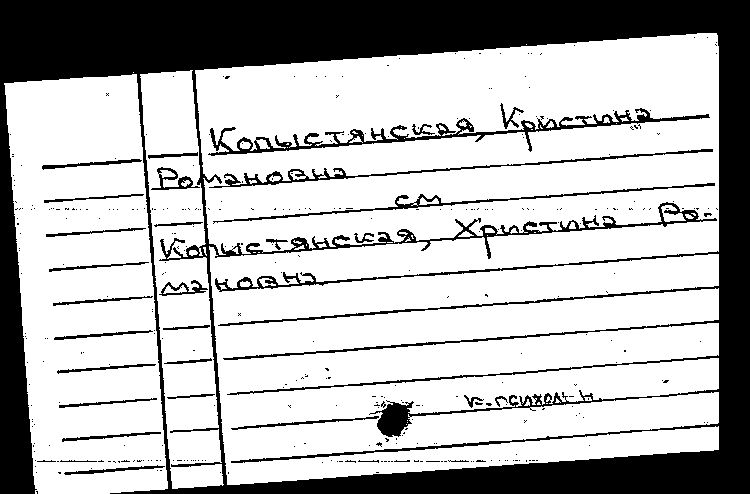 Копыстянская, Кристина
Романовна
см
Копыстянская, Христина Ро-
мановна
к. психол. н.